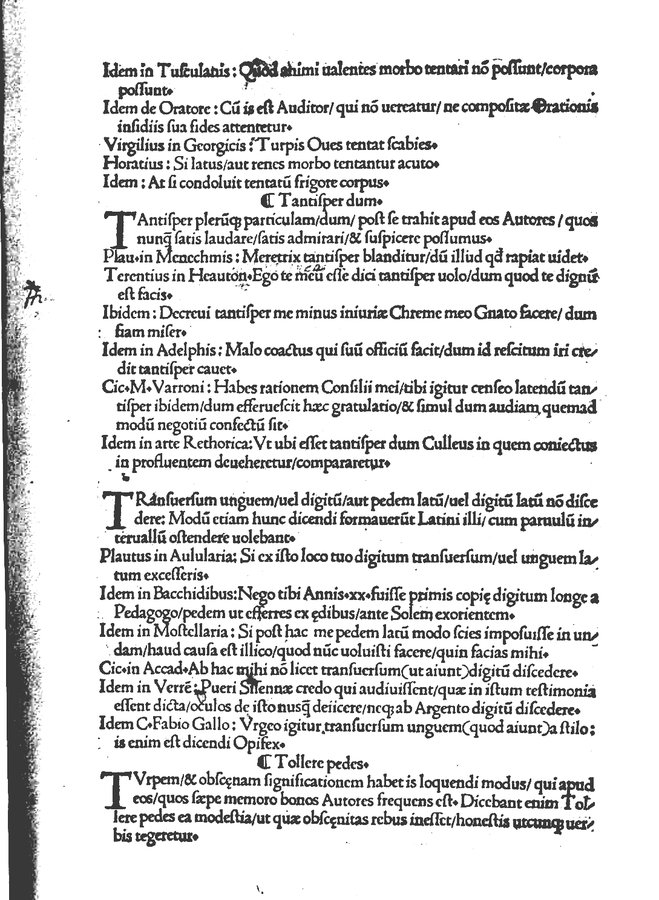 Idem in Tusculanis: Quod animi ualentes morbo tentari nō possunt/corpora
possunt.
Idem de Oratore: Cū is est Auditor/ qui nō uereatur/ ne compositæ Orationis
insidiis sua fides attentetur.
Virgilius in Georgicis: Turpis Oues tentat scabies.
Horatius: Si latus/aut renes morbo tentantur acuto.
Idem: At si condoluit tentatū frigore corpus.
¶ Tantisper dum.
TAntisper plerūq; particulam/dum/ post se trahit apud eos Autores/ quos
nunq̄ satis laudare/satis admirari/& suspicere possumus.
Plau.in Menechmis: Meretrix tantisper blanditur/dū illud qd̄ rapiat uidet.
Terentius in Heauton.Ego te meū esse dici tantisper uolo/dum quod te dignū
est facis.
Ibidem: Decreui tantisper me minus iniuriæ Chreme meo Gnato facere/ dum
fiam miser.
Idem in Adelphis: Malo coactus qui suū officiū facit/dum id rescitum iri cre/
dit tantisper cauet.
Cic.M.Varroni: Habes rationem Consilii mei/tibi igitur censeo latendū tan/
tisper ibidem/dum efferuescit hæc gratulatio/& simul dum audiam quemad
modū negotiū confectū sit.
Idem in arte Rethorica: Vt ubi esset tantisper dum Culleus in quem coniectus
in profluentem deueheretur/compararetur.
TRansuersum unguem/uel digitū/aut pedem latū/uel digitū latū nō disce
dere: Modū etiam hunc dicendi formauerūt Latini illi/ cum paruulū in/
teruallū ostendere uolebant.
Plautus in Aulularia: Si ex isto loco tuo digitum transuersum/uel unguem la/
tum excesseris.
Idem in Bacchidibus: Nego tibi Annis.xx.fuisse primis copię digitum longe a
Pedagogo/pedem ut efferres ex ędibus/ante Solem exorientem.
Idem in Mostellaria: Si post hac me pedem latū modo scies imposuisse in un/
dam/haud causa est illico/quod nūc uoluisti facere/quin facias mihi.
Cic.in Accad.Ab hac mihi nō licet transuersum(ut aiunt)digitū discedere.
Idem in Verrē: Pueri Sisennæ credo qui audiuissent/quæ in istum testimonia
essent dicta/oculos de isto nusq̄ deiicere/neq; ab Argento digitū discedere.
Idem C.Fabio Gallo: Vrgeo igitur transuersum unguem(quod aiunt)a stilo:
is enim est dicendi Opifex.
¶ Tollere pedes.
TVrpem/& obscęnam significationem habet is loquendi modus/ qui apud
eos/quos sæpe memoro bonos Autores frequens est. Dicebant enim Tol/
lere pedes ea modestia/ut quæ obscęnitas rebus inesset/honestis utcunq; uer/
bis tegeretur.